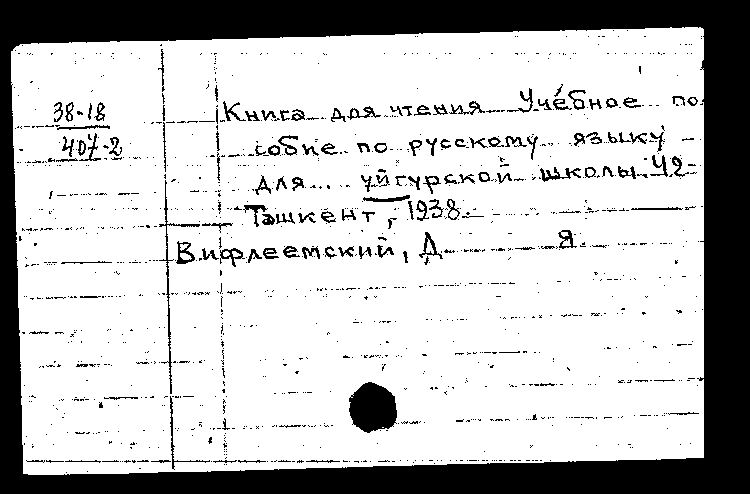 38-18
407-2
Книга для чтения Учебное по
собие по русскому языку -
для уйгурской школы. Ч2-
Ташкент, 1938.
Вифлеемский, Д Я.